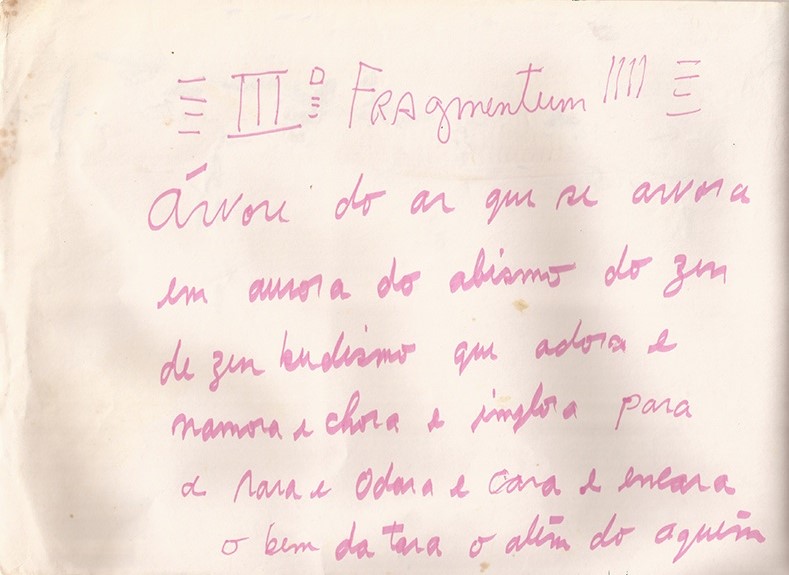 III º Fragmentum
Árvore do ar que se arvora
em aurora do abismo do zen
de zen budismo que adora e
namora e chora e implora para
a rara e Odara e cara e encara
o bem da tara o além do aquém